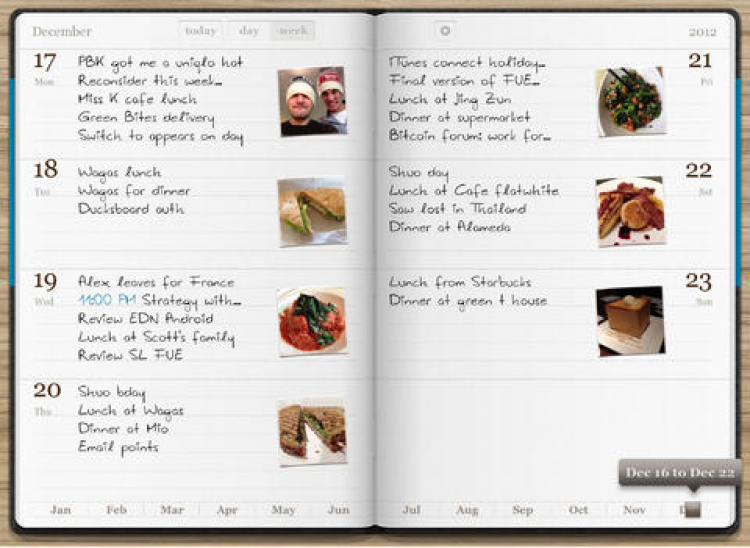 December
today day week
2012
17
Mon
PBK got me a uniqlo hat
Reconsider this week...
Miss K cafe lunch
Green Bites delivery
Switch to appears on day
18
Tue
Wagas lunch
Wagas for dinner
Ducksboard auth
19
Wed
Alex leaves for France
11:00 PM Strategy with...
Review EDN Android
Lunch at Scott's family
Review SL FUE
20
Thu
Shuo bday
Lunch at Wagas
Dinner at Mio
Email points
21
Fri
iTunes connect holiday...
Final version of FUE...
Lunch at Jing Zun
Dinner at supermarket
Bitcoin forum: work for...
22
Sat
Shuo day
Lunch at Cafe flatwhite
Saw lost in Thailand
Dinner at Alameda
23
Sun
Lunch from Starbucks
Dinner at green t house
Dec 16 to Dec 22
Jan Feb Mar Apr May Jun Jul Aug Sep Oct Nov D